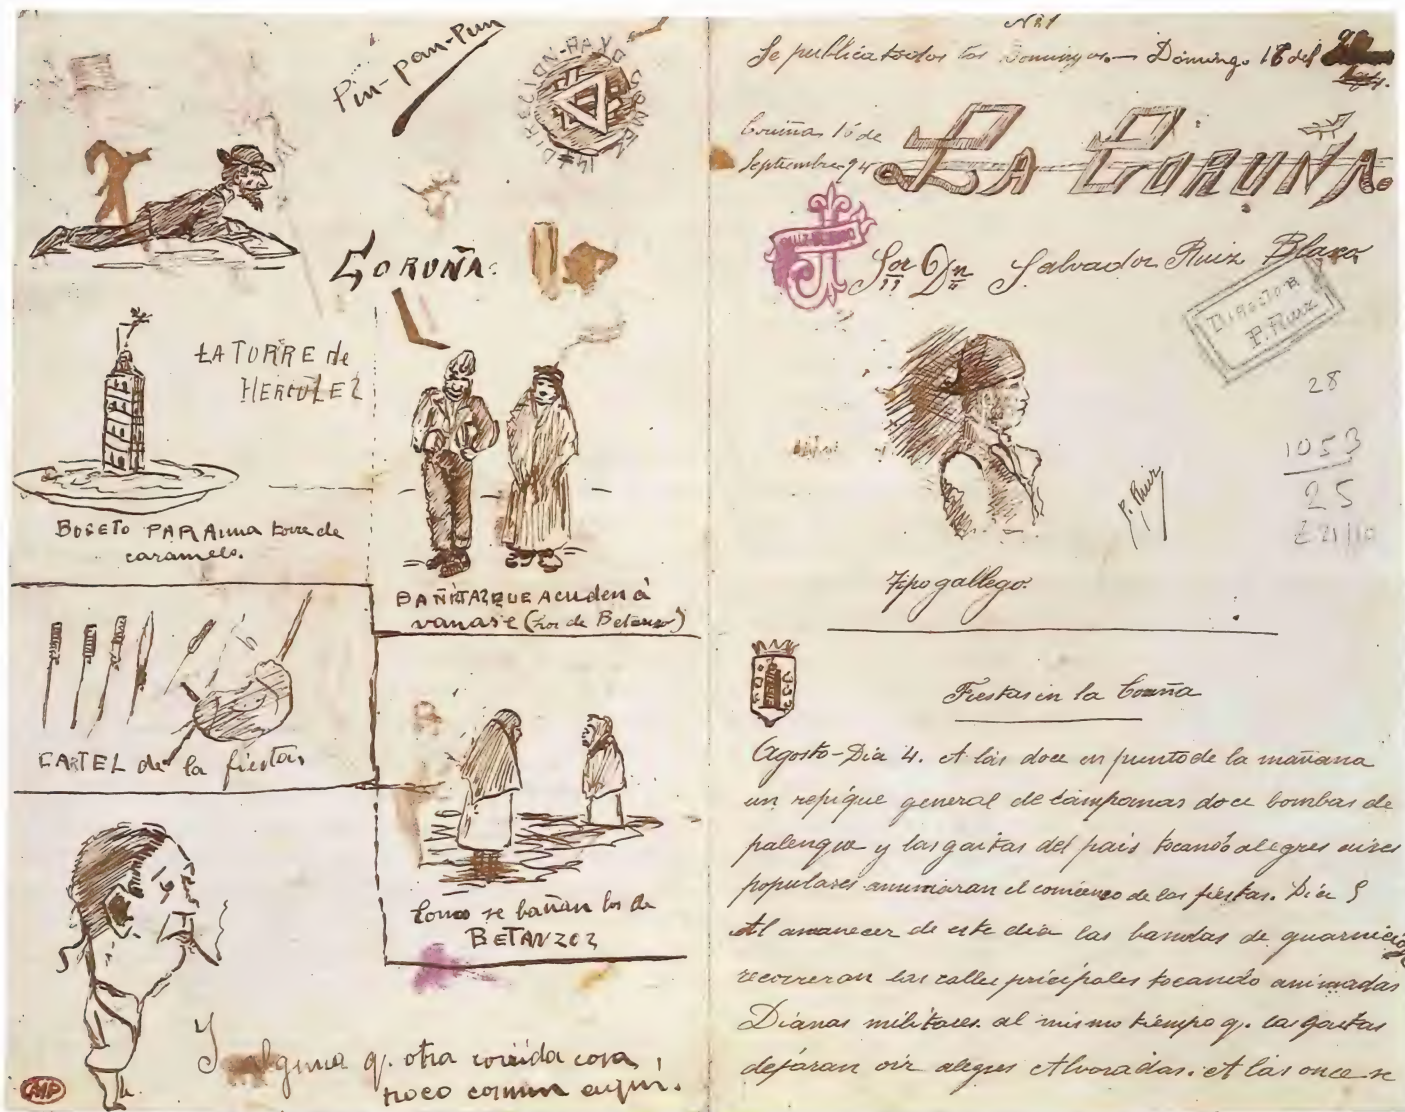 Pin-pan-Pun
DIRECION-PAY GOMEZ 14
CORUÑA:
LA TORRE de
HERCULEZ
BOSETO PARA una torre de
caramelo.
BAÑITAZ QUE Acuden á
vanase (Los de Betanzo)
CARTEL de la fiestas
Como se bañan los de
BETANZOZ
Y alguna q. otra corrida cosa
poco comun aquí.
MP
Nº 1
Se publica todos los Domingos.— Domingo 16 del
Coruña 16 de
Septiembre 94
LA CORUÑA.
RUIZ BLASCO
Sor Dn Salvador Ruiz Blasco
DIRECTOR
P. Ruiz
28
1053
25
P. Ruiz
Tipo gallego.
Fiestas en la Coruña
Agosto-Dia 4. A las doce en punto de la mañana
un repique general de campanas doce bombas de
palenque y las gaitas del pais tocando alegres aires
populares anunciaran el comienzo de las fiestas. Dia 5
Al amanecer de este dia las bandas de guarnición
recorreran las calles pricipales tocando animadas
Dianas militares. al mismo tiempo q. las gaitas
dejaran oir alegres Alvoradas. A las once se